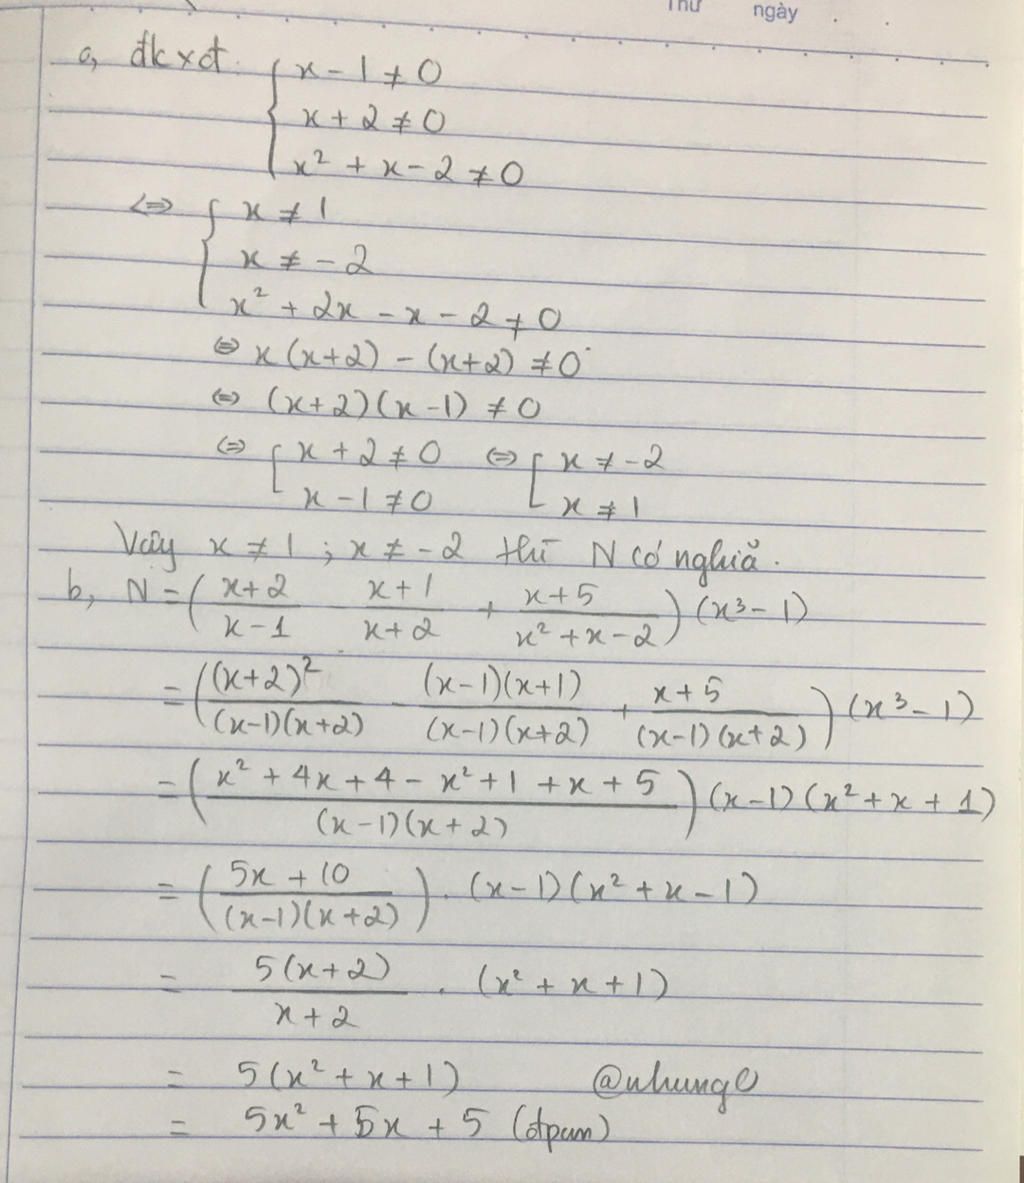 Thứ ngày . .
a, đkxđ: { x - 1 ≠ 0
x + 2 ≠ 0
x² + x - 2 ≠ 0
<=> { x ≠ 1
x ≠ -2
x² + 2x - x - 2 ≠ 0
<=> x(x+2) - (x+2) ≠ 0
<=> (x+2)(x-1) ≠ 0
<=> [ x + 2 ≠ 0 <=> [ x ≠ -2
x - 1 ≠ 0 x ≠ 1
Vậy x ≠ 1 ; x ≠ -2 thì N có nghĩa.
b, N = ( (x+2)/(x-1) - (x+1)/(x+2) + (x+5)/(x²+x-2) ) (x³-1)
= ( (x+2)²/((x-1)(x+2)) - ((x-1)(x+1))/((x-1)(x+2)) + (x+5)/((x-1)(x+2)) ) (x³-1)
= ( (x² + 4x + 4 - x² + 1 + x + 5)/((x-1)(x+2)) ) (x-1)(x²+x+1)
= ( (5x + 10)/((x-1)(x+2)) ) . (x-1)(x²+x-1)
= (5(x+2))/(x+2) . (x²+x+1)
= 5(x²+x+1) @nhunge
= 5x² + 5x + 5 (đpcm)